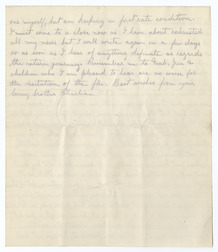 one myself, but am keeping in first rate condition.
I must come to a close now as I have about exhausted
all my news but I will write again in a few days
or as soon as I hear of anything definite as regards
the return journey. Remember me to
children who I am pleased to hear are no worse for
the visitation of the flu. Best wishes from your
loving brother